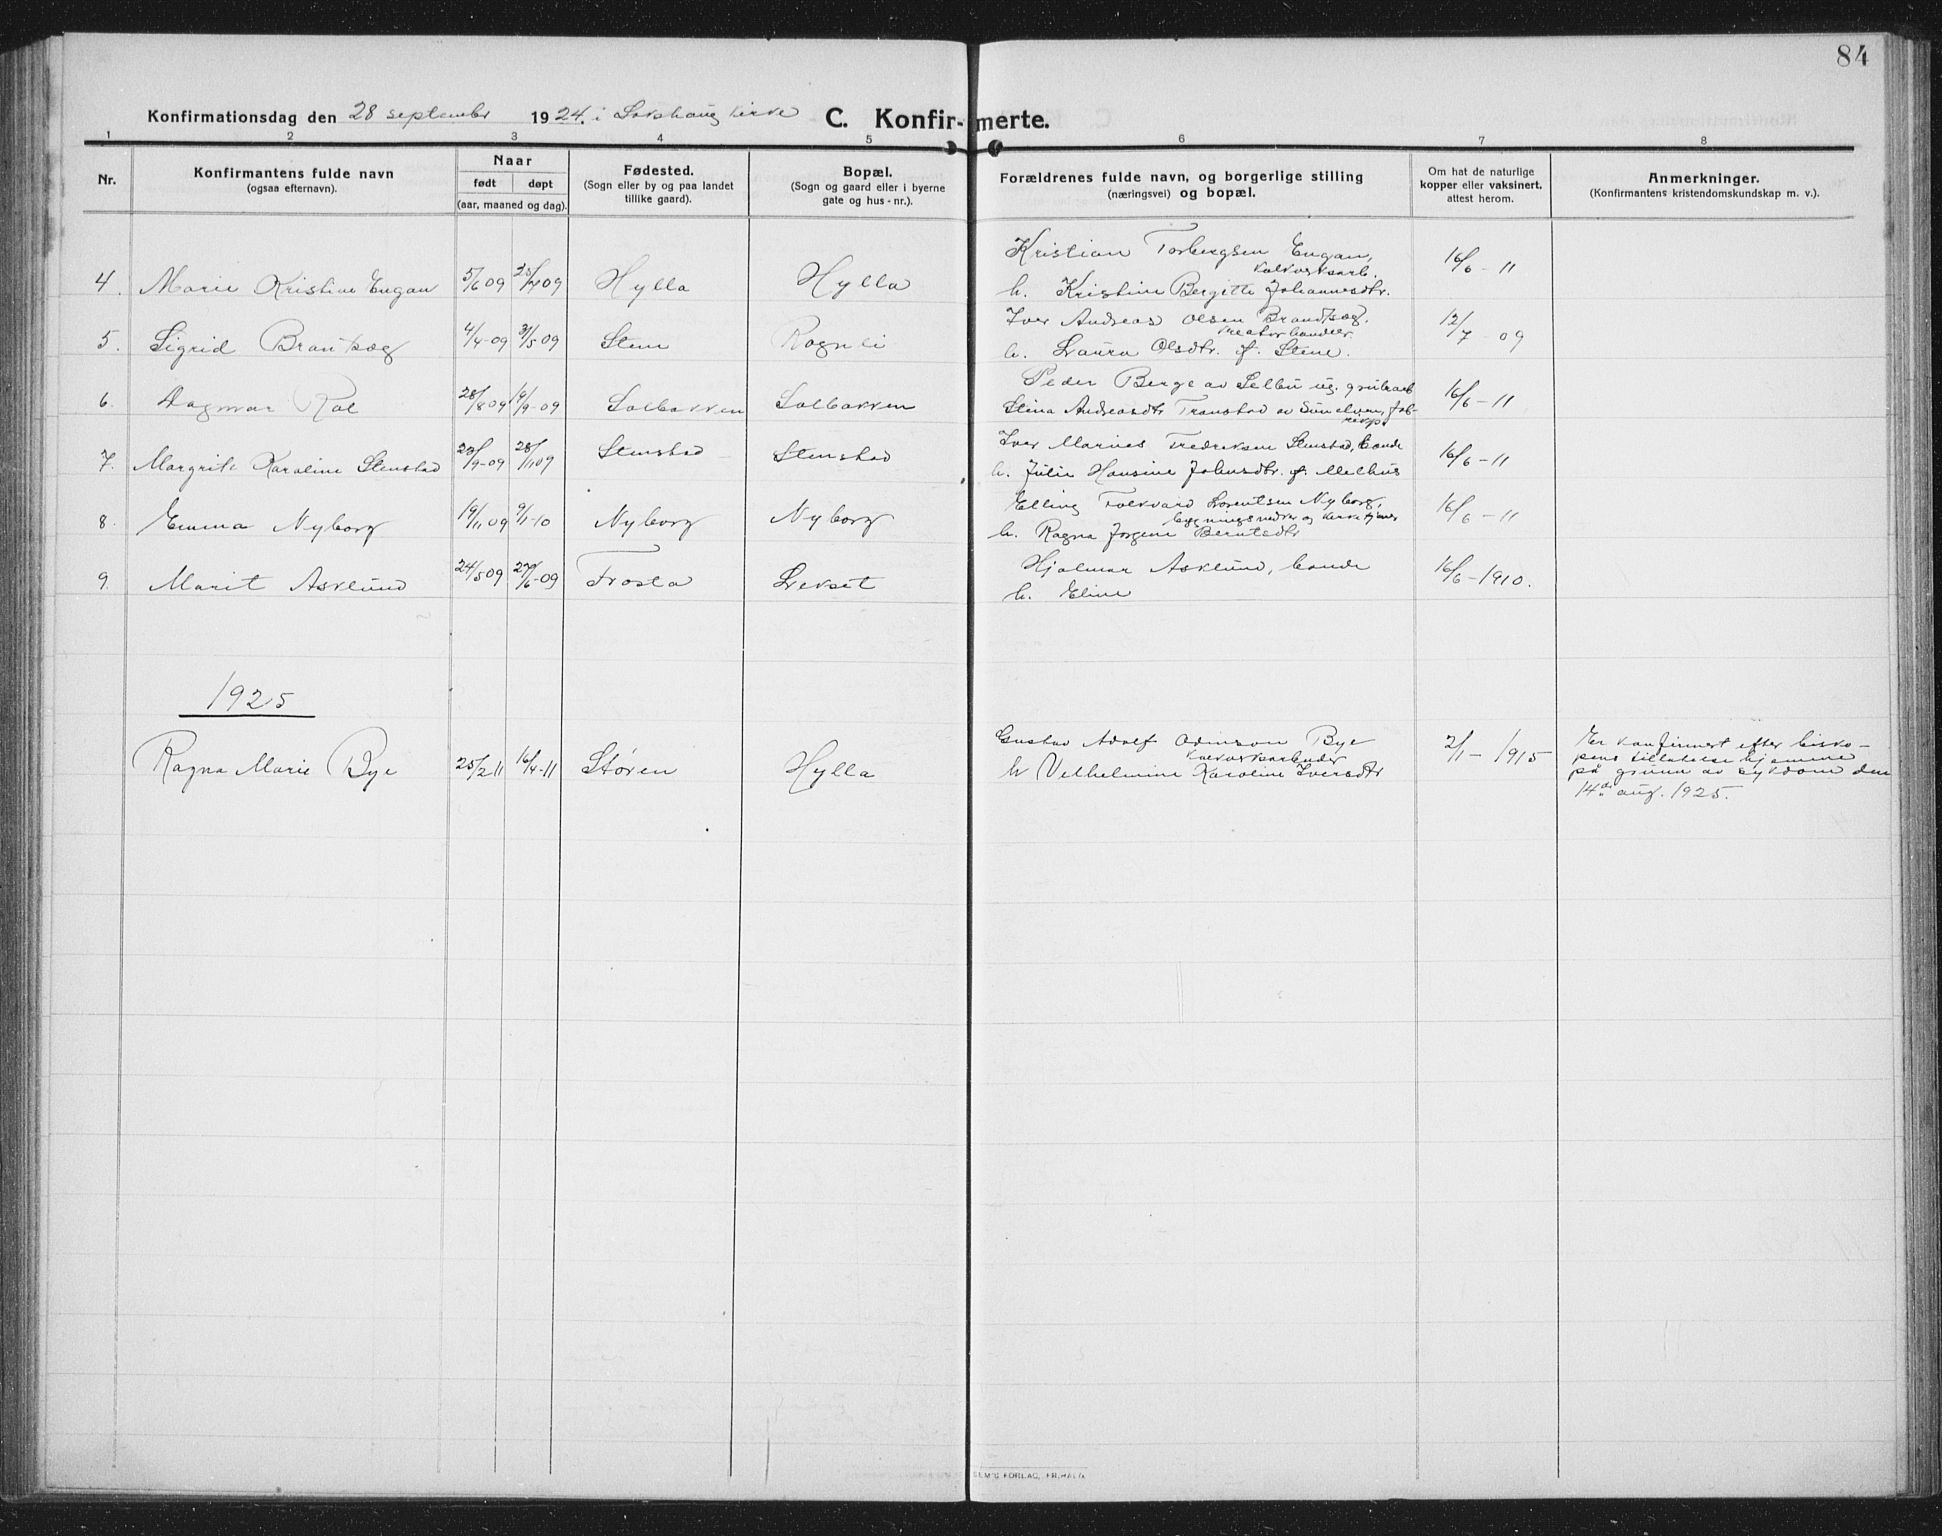 84
Konfirmationsdag den 28 september 1924. i Sakshaug kirke C. Konfirmerte.
1 2 3 4 5 6 7 8
Nr.
Konfirmantens fulde navn
(ogsaa efternavn).
Naar
født døpt
(aar, maaned og dag).
Fødested.
(Sogn eller by og paa landet
tillike gaard).
Bopæl.
(Sogn og gaard eller i byerne
gate og hus-nr.).
Forældrenes fulde navn, og borgerlige stilling
(næringsvei) og bopæl.
Om hat de naturlige
kopper eller vaksinert,
attest herom.
Anmerkninger.
(Konfirmantens kristendomskundskap m. v.).
Kristian Torbergsen Engan,
kalkverksarb.
4. Marie Kristine Engan 5/6 09 09 Hylla Hylla h. Kristine Bergitte Johannesdtr. 16/6-11
Iver Andreas Olsen Brandtsæg.
5. Sigrid Brantsæg 4/4-09 31/5 09 Stene Ragnli h. Laura Olsdtr. f. Stene. 12/7-09
Peder Berge av Selbu ug. grubearb
6. Dagmar Rol 28/8 09 19/9-09 Solbakken Solbakken Stina Andreasdtr Transtad av 16/6-11
Iver Marius Fredriksen Stenstad, bonde
7. Margrite Karoline Stenstad 09 28/11 09 Stenstad Stenstad h. Julie Hansine Johnsdtr. f. Melhus 16/6-11
Elling Folkvard Lorentsen Nyborg,
bygningssnedker og kirketjener
8. Emma Nyborg 19/11 09 9/1-10 Nyborg Nyborg h. Ragna Jørgine Berntsdtr 16/6-11
Hjalmar Asklund, bonde
9. Marit Asklund 24/5 09 27/6-09 Frosta Lekset h. Eline 16/6-1910.
1925
Gustav Adolf Odinson Bye
kalkverksarbeider
Ragna Marie Bye 25/2 11 16/4-11 Støren Hylla h Vilhelmine Karoline Iversdtr 2/1-1915
Er konfirmert efter bisko-
pens tillatelse hjemme
på grunn av sykdom den
14de aug. 1925.